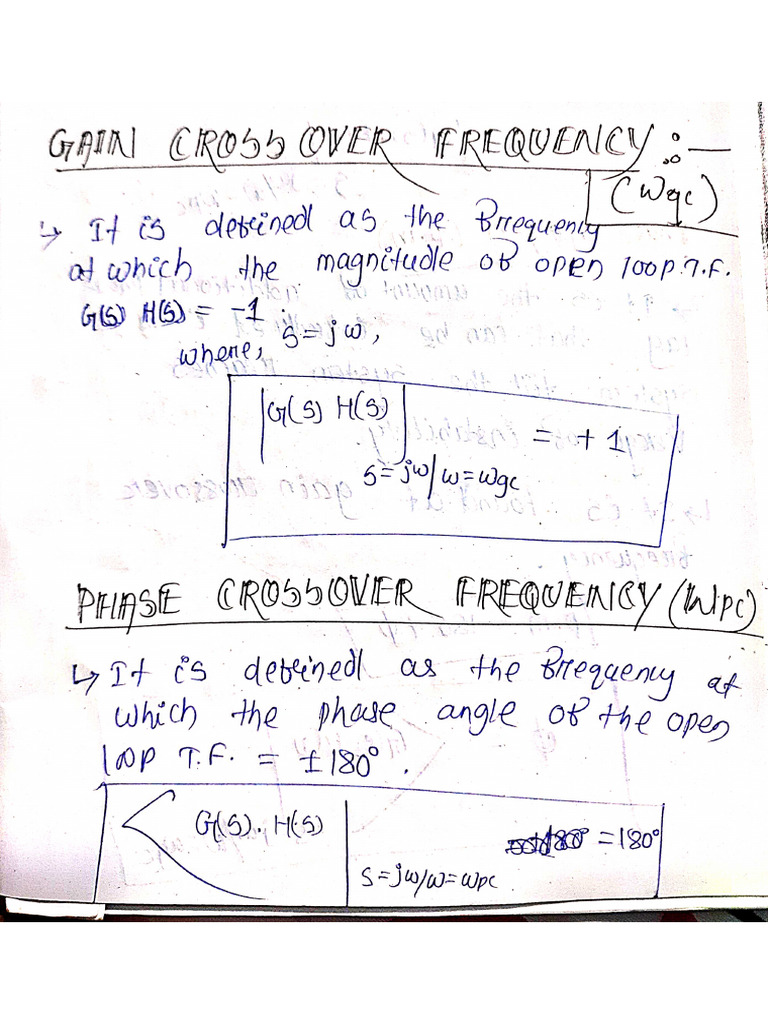 GAIN CROSSOVER FREQUENCY :-
(Wgc)
↳ It is defined as the frequency
at which the magnitude of open loop T.F.
G(s) H(s) = -1
where, s = jw,
|G(s) H(s)| = + 1
s = jw/w = wgc
PHASE CROSSOVER FREQUENCY (Wpc)
↳ It is defined as the frequency at
which the phase angle of the open
loop T.F. = ±180°.
∠G(s). H(s) | = 180°
s = jw/w = wpc